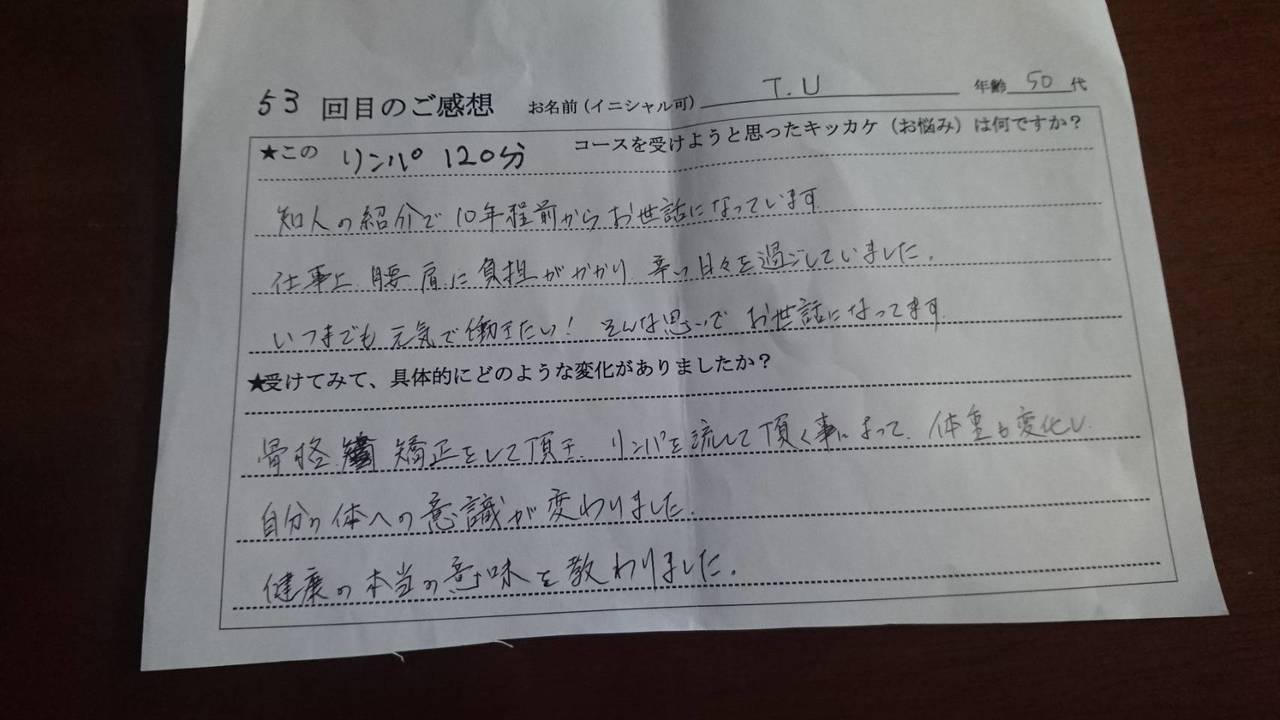 53 回目のご感想 お名前(イニシャル可) T.U 年齢 50 代
★この リンパ 120分 コースを受けようと思ったキッカケ(お悩み)は何ですか?
知人の紹介で 10年程前からお世話になっています
仕事上 腰 肩に負担がかかり 辛い日々を過ごしていました。
いつまでも元気で働きたい! そんな思いで お世話になってます
★受けてみて、具体的にどのような変化がありましたか?
骨格 矯正をして頂き、リンパを流して頂く事によって、体重も変化し
自分の体への意識が変わりました。
健康の本当の意味を教わりました。